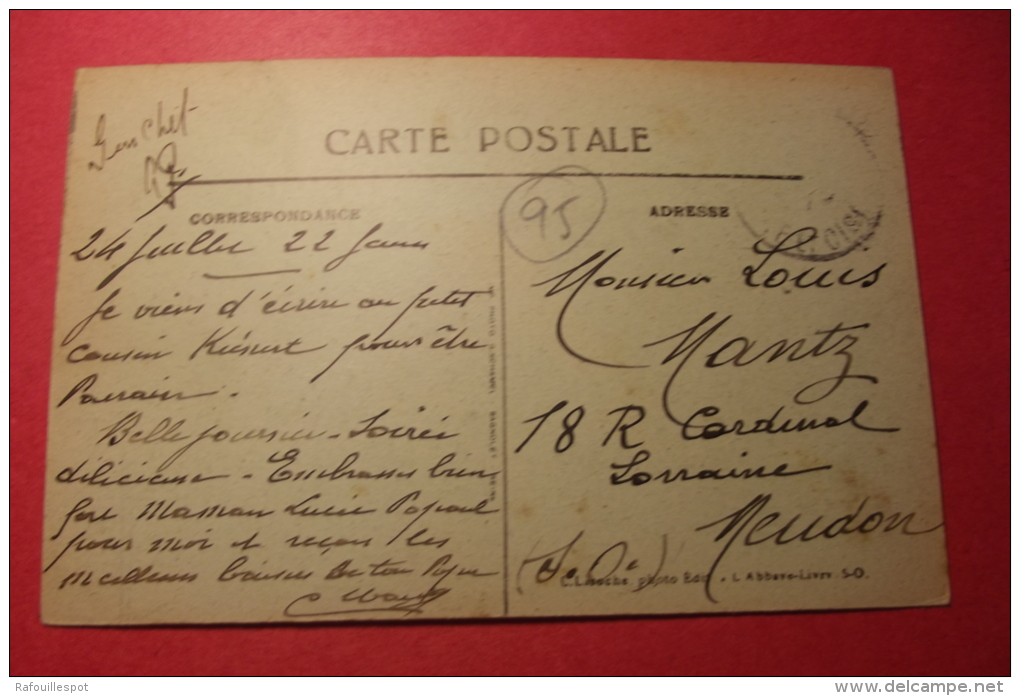 CARTE POSTALE
CORRESPONDANCE
ADRESSE
95
24 Juillet 22
Je viens d'écrire au petit
cousin pour être
Parrain.
Belle journée - Soirée
délicieuse - Embrasse bien
fort Maman Lucie Papaul
pour moi et reçois les
meilleurs baisers de ton
Monsieur Louis
Mantz
18 R Cardinal
Lorraine
Meudon
(S. O.)
photo Edit. - L'Abbaye-Livry S-O.
Rafouillespot
www.delcampe.net